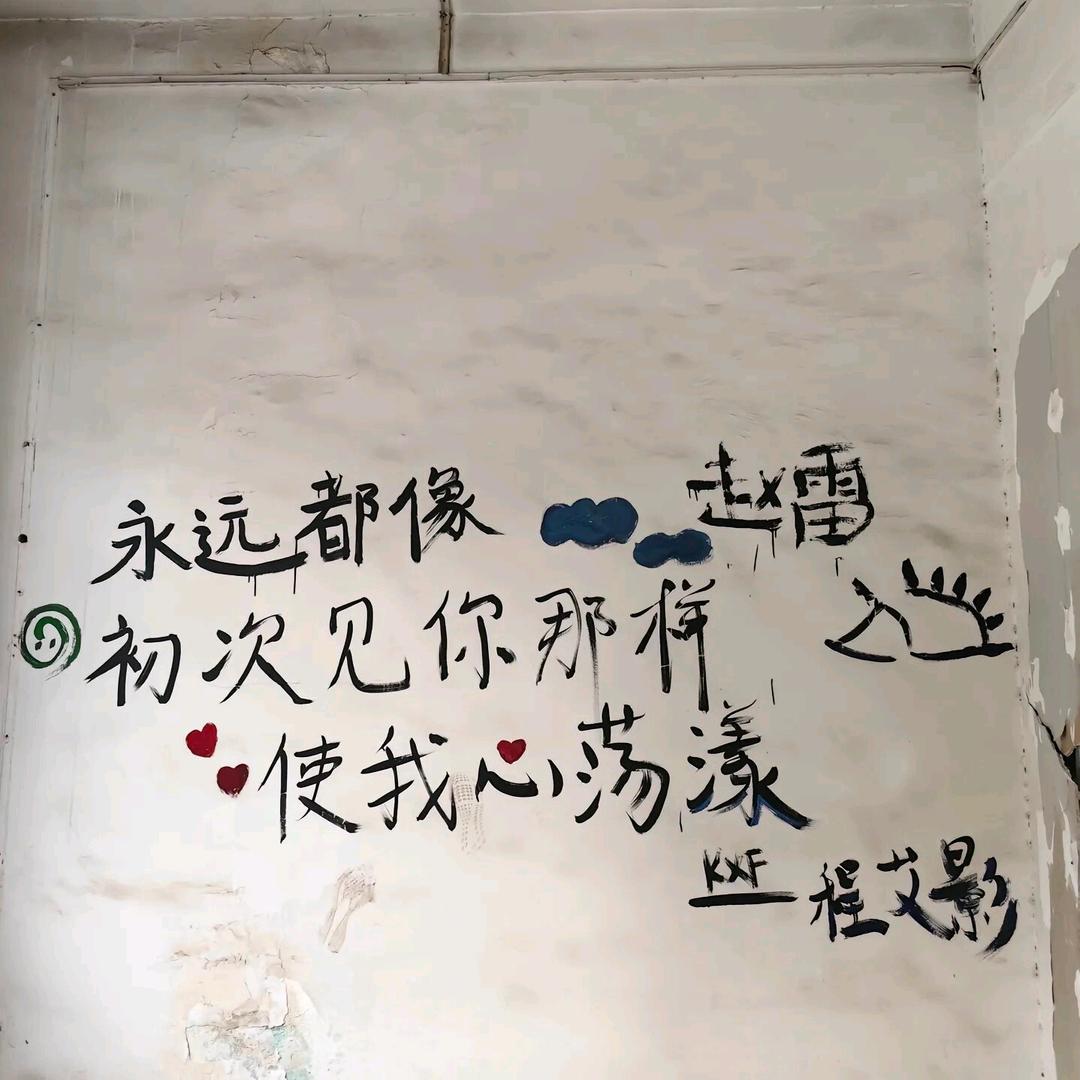 永远都像 赵雷
初次见你那样
使我心荡漾
KXF
程艾影